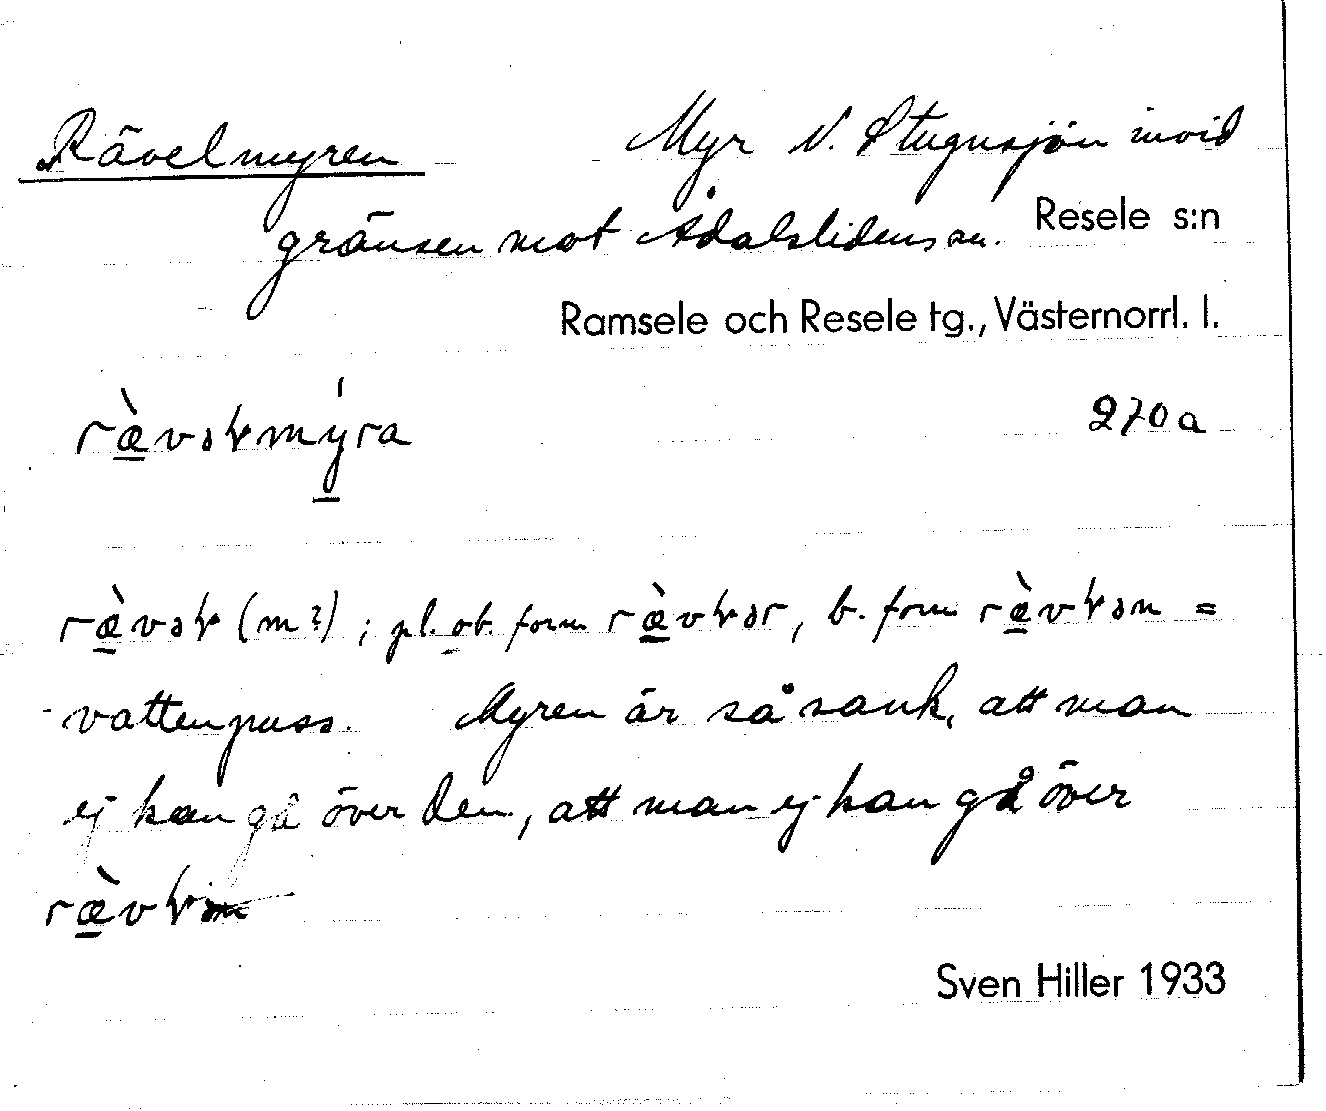 Rävelmyren Myr N. Stugusjön invid
gränsen mot Ådalslidens sn. Resele s:n
Ramsele och Resele tg., Västernorrl. l.
ræ̀vəɭmýra 270 a
ræ̀vəɭ (m?); pl. ob. form ræ̀vɭər, b. form ræ̀vɭən =
vattenpuss. Myren är så sank, att man
ej kan gå över den, att man ej kan gå över
ræ̀vɭ
Sven Hiller 1933